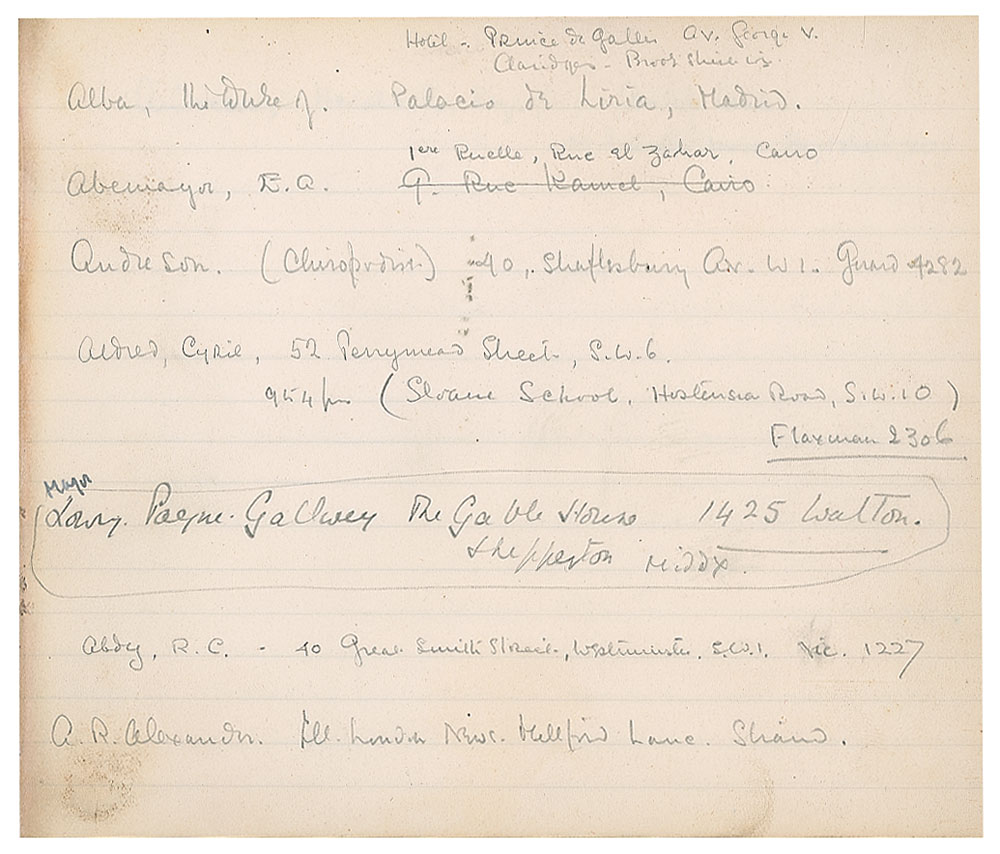 Hotel - Prince de Galles Av. George V.
Claridges - Brook Street W1.
Alba, the Duke of. Palacio de Liria, Madrid.
1ere Ruelle, Rue el Zahar, Cairo
Abemayor, E.A. 9. Rue Kamel, Cairo
Anderson. (Chiropodist) 40, Shaftesbury Av. W1. Gerrard 4282
Aldred, Cyril, 52 Perrymead Street, S.W.6.
(Sloane School, Hortensia Road, S.W.10)
Flaxman 2306
Major
Lowry. Payne-Gallwey The Gable House 1425 Walton.
Shepperton Middx.
Abdy, R.C. - 40 Great Smith Street, Westminster, S.W.1. Vic. 1227
A. R. Alexander. Ill. London News. Milford Lane. Strand.